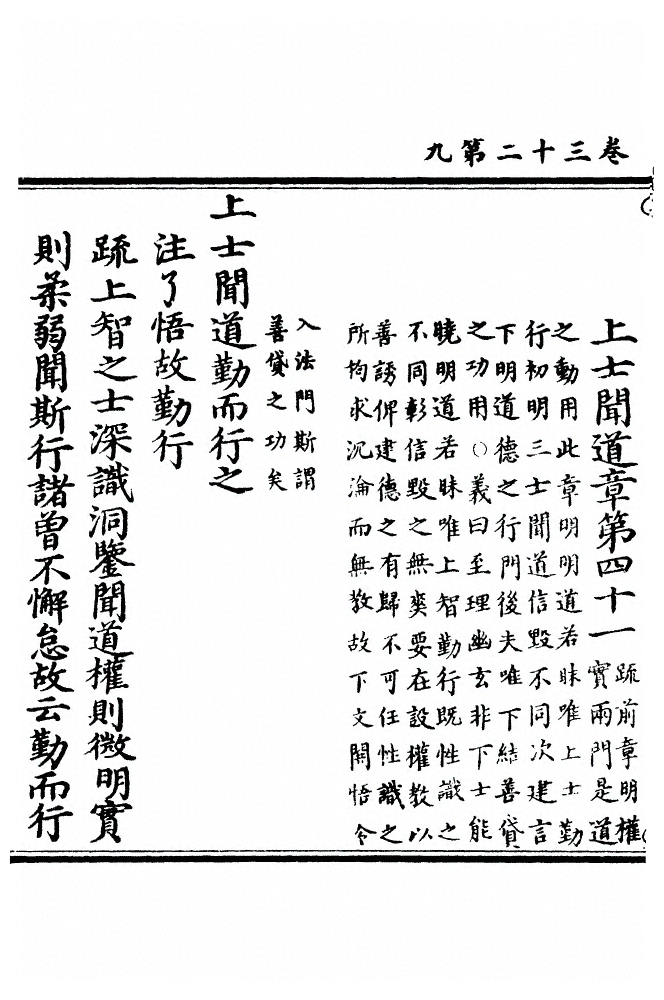 卷三十二第九
上士聞道章第四十一
疏前章明權
實兩門是道
之動用此章明明道若昧唯上士勤
行初明三士聞道信毀不同次建言
下明道德之行門後夫唯下結善貸
之功用○義曰至理幽玄非下士能
曉明道若昧唯上智勤行既性識之
不同彰信毀之無爽要在設權教以
善誘俾建德之有歸不可任性識之
所拘求沉淪而無教故下文開悟令
入法門斯謂
善貸之功矣
上士聞道勤而行之
注了悟故勤行
疏上智之士深識洞鑒聞道權則微明實
則柔弱聞斯行諸曾不懈怠故云勤而行